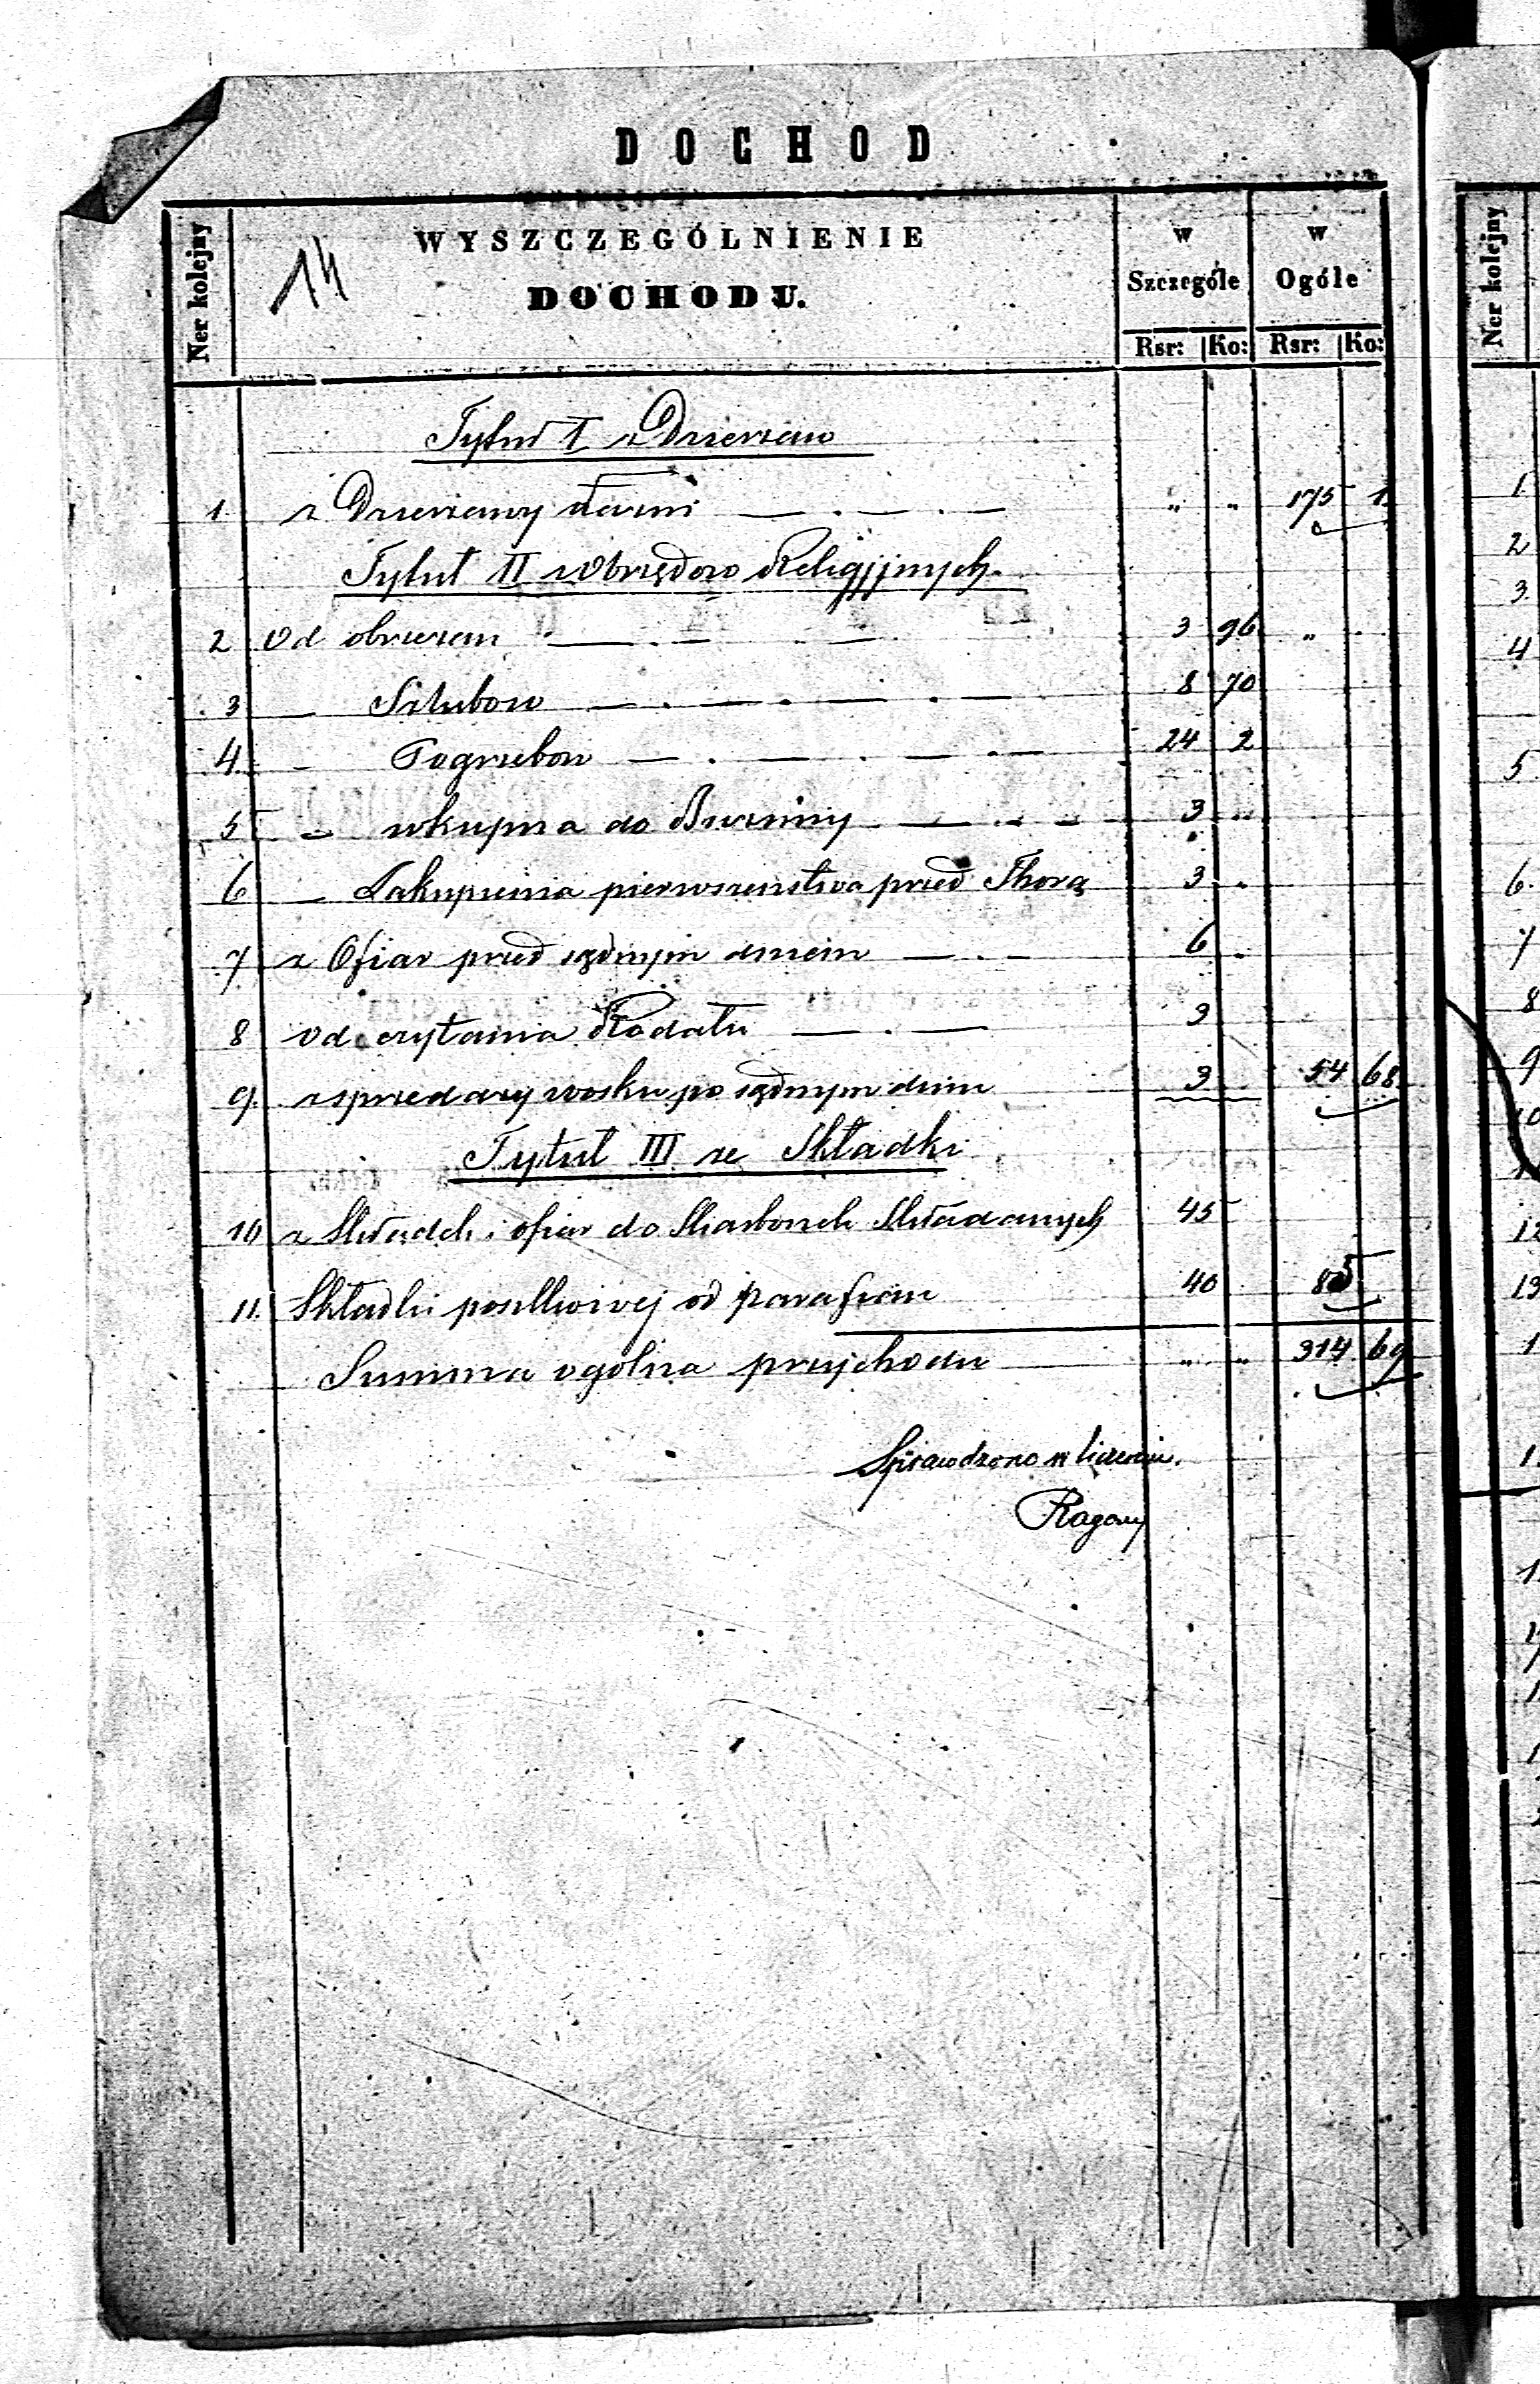 DOCHOD
Ner kolejny
14
WYSZCZEGÓLNIENIE
DOCHODU.
w
Szczególe
w
Ogóle
Rsr: Ko: Rsr: Ko:
Tytuł I z Dzierżaw
1. z Dzierżawy Łaźni „ „ 175 1
Tytuł II z Obrzędow Religyjnych.
2 Od obrzezan 3 96 „
3 — Szlubow 8 70
4. — Pogrzebow 24 2
5 — wkupna do Bużnicy 3 „
6 — Zakupienia pierwszenstwa przed Thorą 3 „
7 z Ofiar przed sądnym dniem 6
8 od czytania Rodału 3
9. z sprzedaży wosku po sądnym dniu 3 54 68
Tytuł III ze Składki
10 z Składek i ofiar do Skarbonek Składanych 45
11. Składki posiłkowej od parafian 40 85
Summa ogolna przychodu „ „ 314 69
Sprawdzono w liczeniu.
Ner kolejny
1.
2
3.
4
5
6.
7
8
9